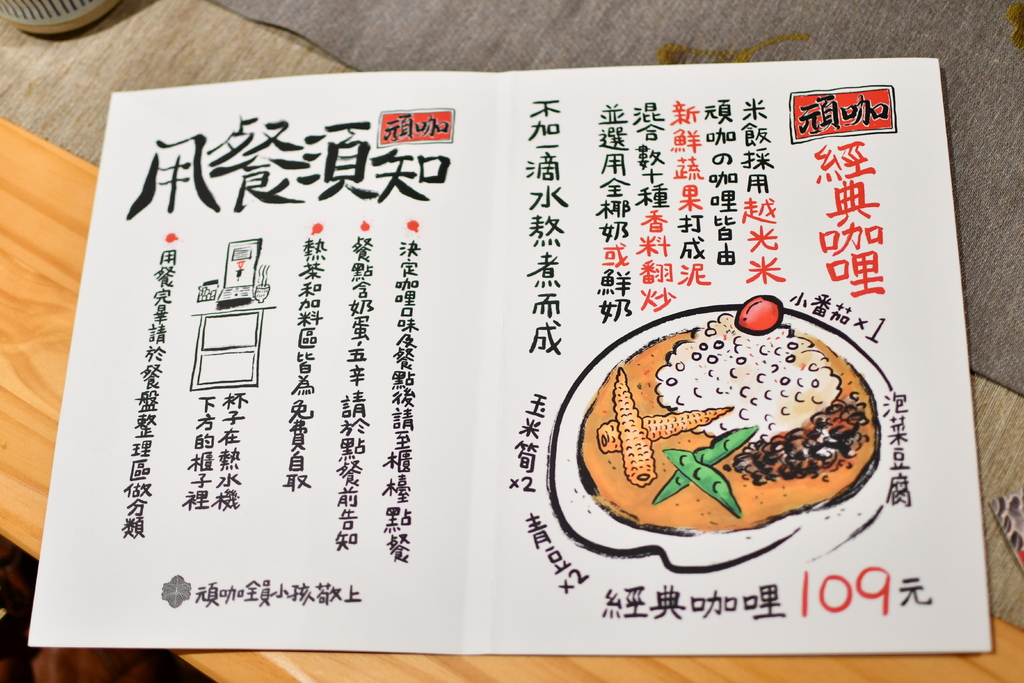 頑咖
經典咖哩
米飯採用越光米
頑咖の咖哩皆由
新鮮蔬果打成泥
混合數十種香料翻炒
並選用全椰奶或鮮奶
不加一滴水熬煮而成
小番茄×1
泡菜豆腐
玉米筍×2
青豆×2
經典咖哩109元
頑咖
用餐須知
決定咖哩口味及餐點後請至櫃檯點餐
餐點含奶蛋五辛 請於點餐前告知
熱茶和加料區皆為免費自取
杯子在熱水機
下方的櫃子裡
用餐完畢請於餐盤整理區做分類
頑咖全員小孩敬上